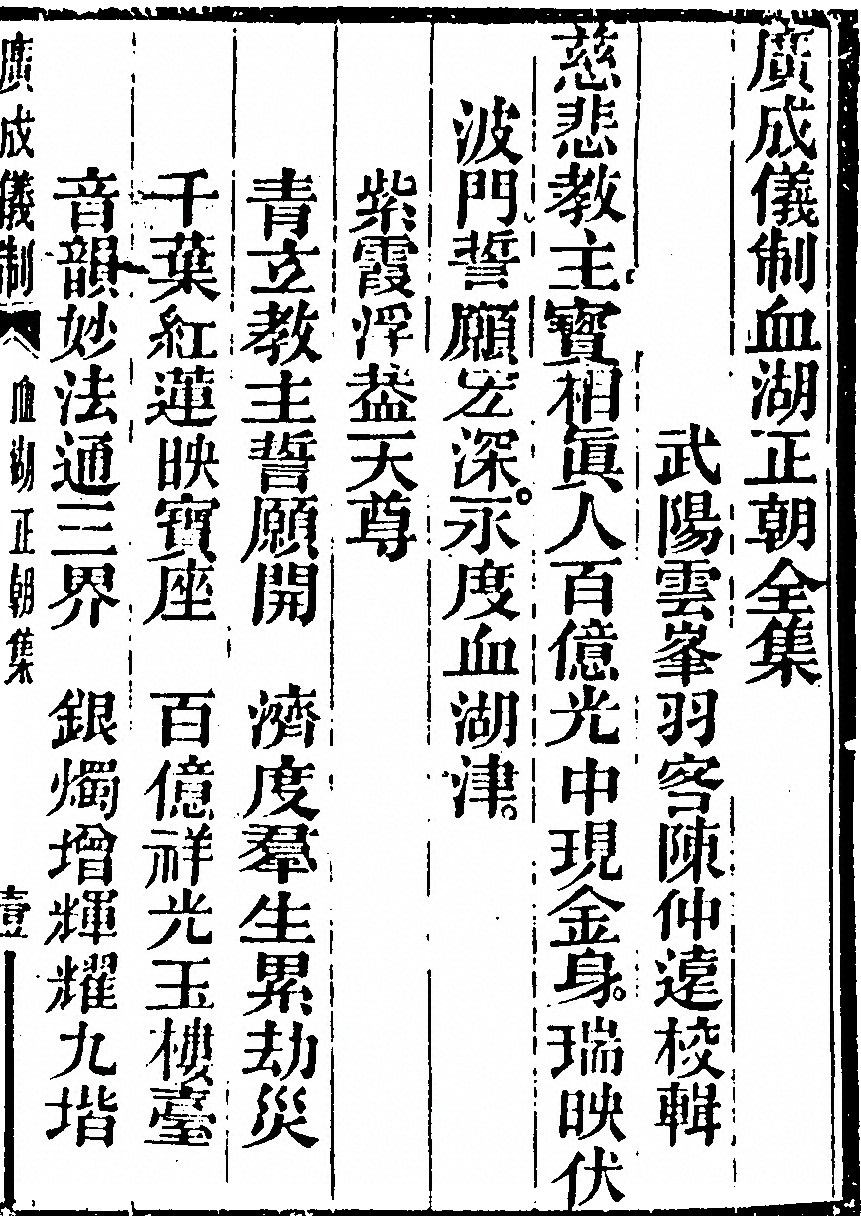 廣成儀制血湖正朝全集
武陽雲峯羽客陳仲遠校輯
慈悲教主寶相眞人百億光中現金身。瑞映伏
波門誓願宏深。永度血湖津。
紫霞浮盖天尊
青立教主誓願開　濟度羣生累劫災
千葉紅蓮映寶座　百億祥光玉樓臺
音韻妙法通三界　銀燭增輝耀九堦
廣成儀制　血湖正朝集　壹